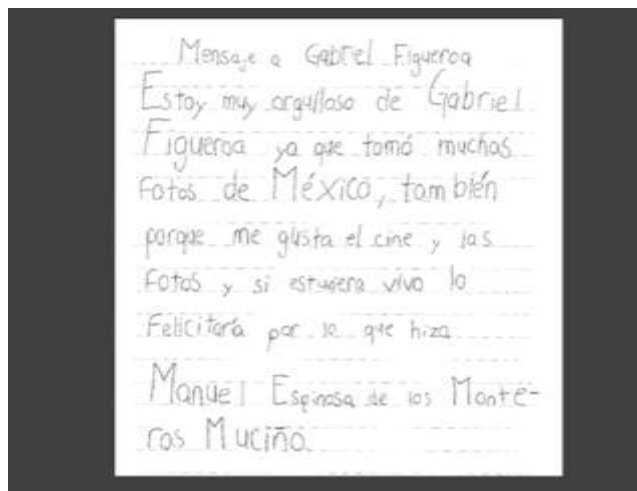 Mensaje a Gabriel Figueroa
Estoy muy orgulloso de Gabriel
Figueroa ya que tomó muchas
fotos de México, también
porque me gusta el cine y las
fotos y si estuviera vivo lo
felicitaría por lo que hizo
Manuel Espinosa de los Monte-
ros Muciño.